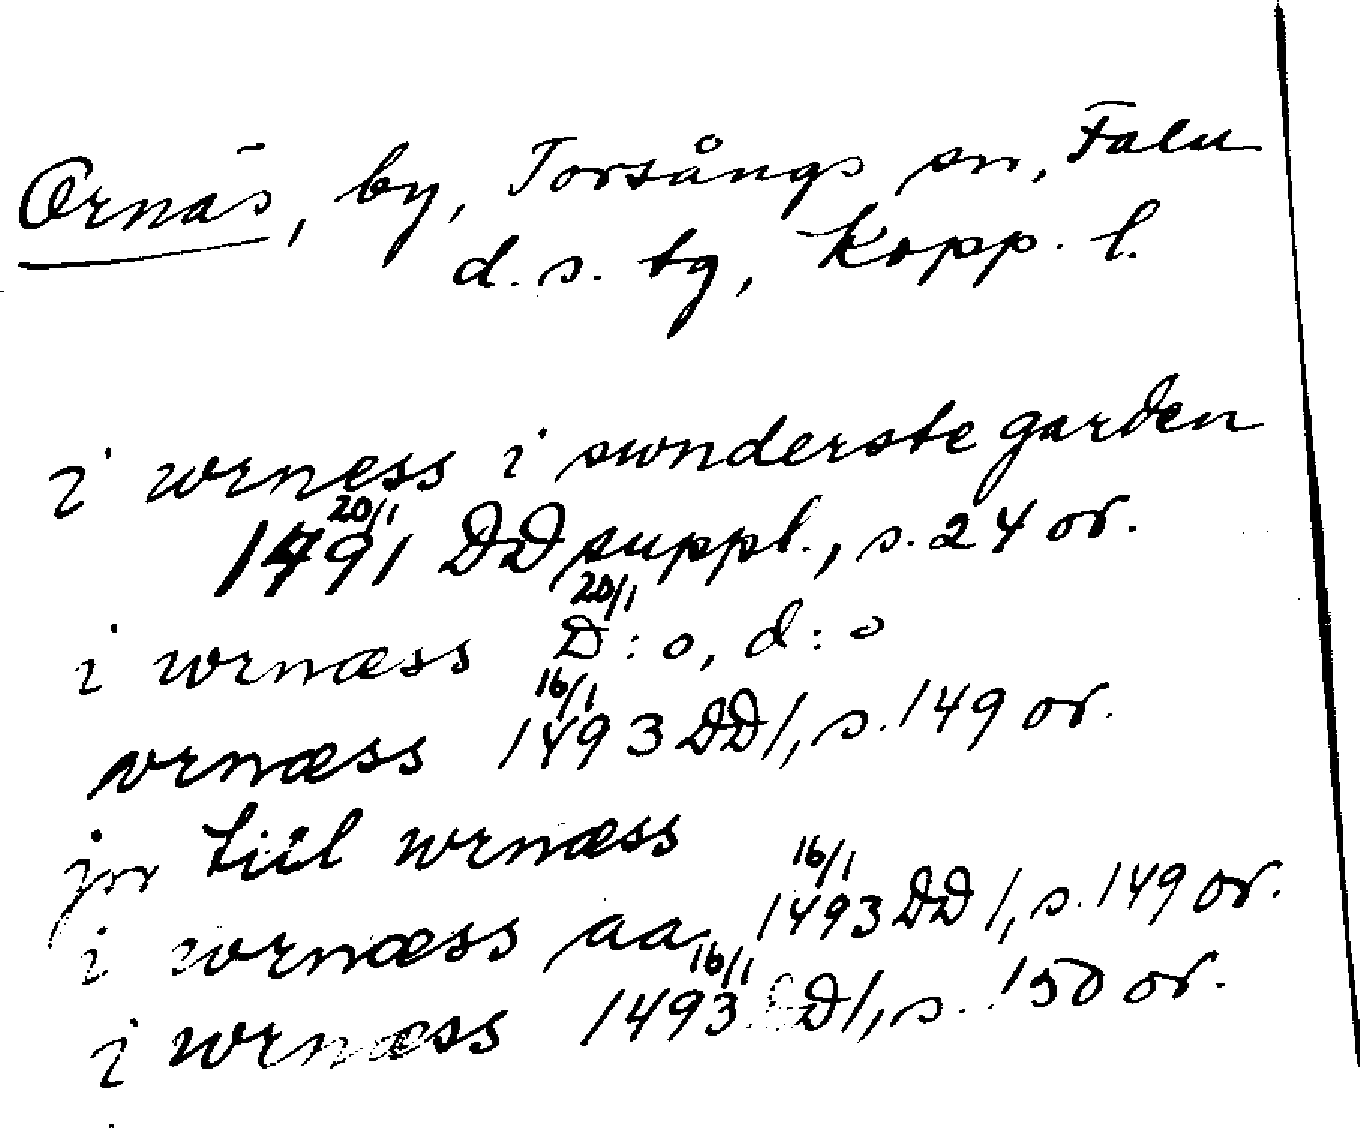 Ornäs, by, Torsångs sn, Falu
d.s. tg, Kopp. l.
i wrness i swnderste garden
20/1
1491 DD suppl., s. 24 or.
20/1
i wrnæss D:o, d:o
16/1
wrnæss 1493 DD 1, s. 149 or.
jnr tiil wrnæss
16/1
i wrnæss aa 1493 DD 1, s. 149 or.
16/1
i wrnæss 1493 DD 1, s. 150 or.